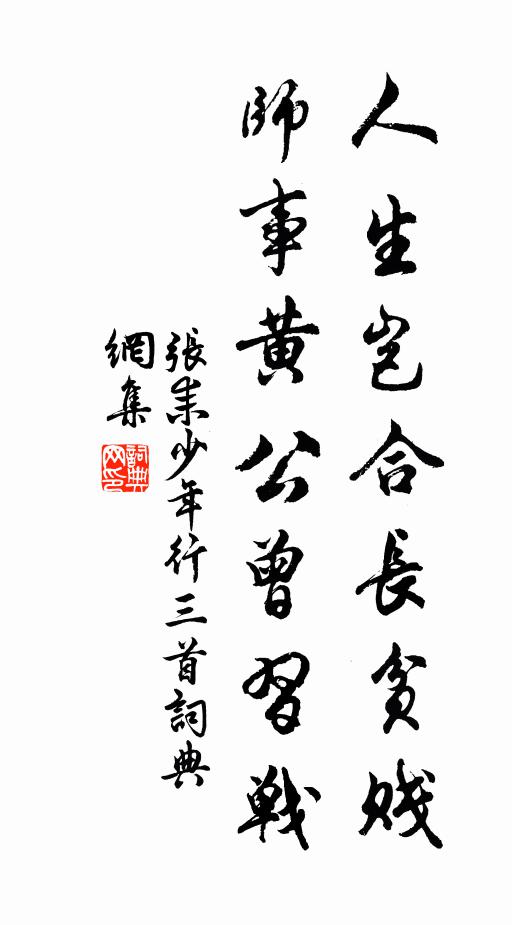 人生豈合長貧賤
師事黃公曾習戰
張耒少年行三首詞典
網集
詞典网印